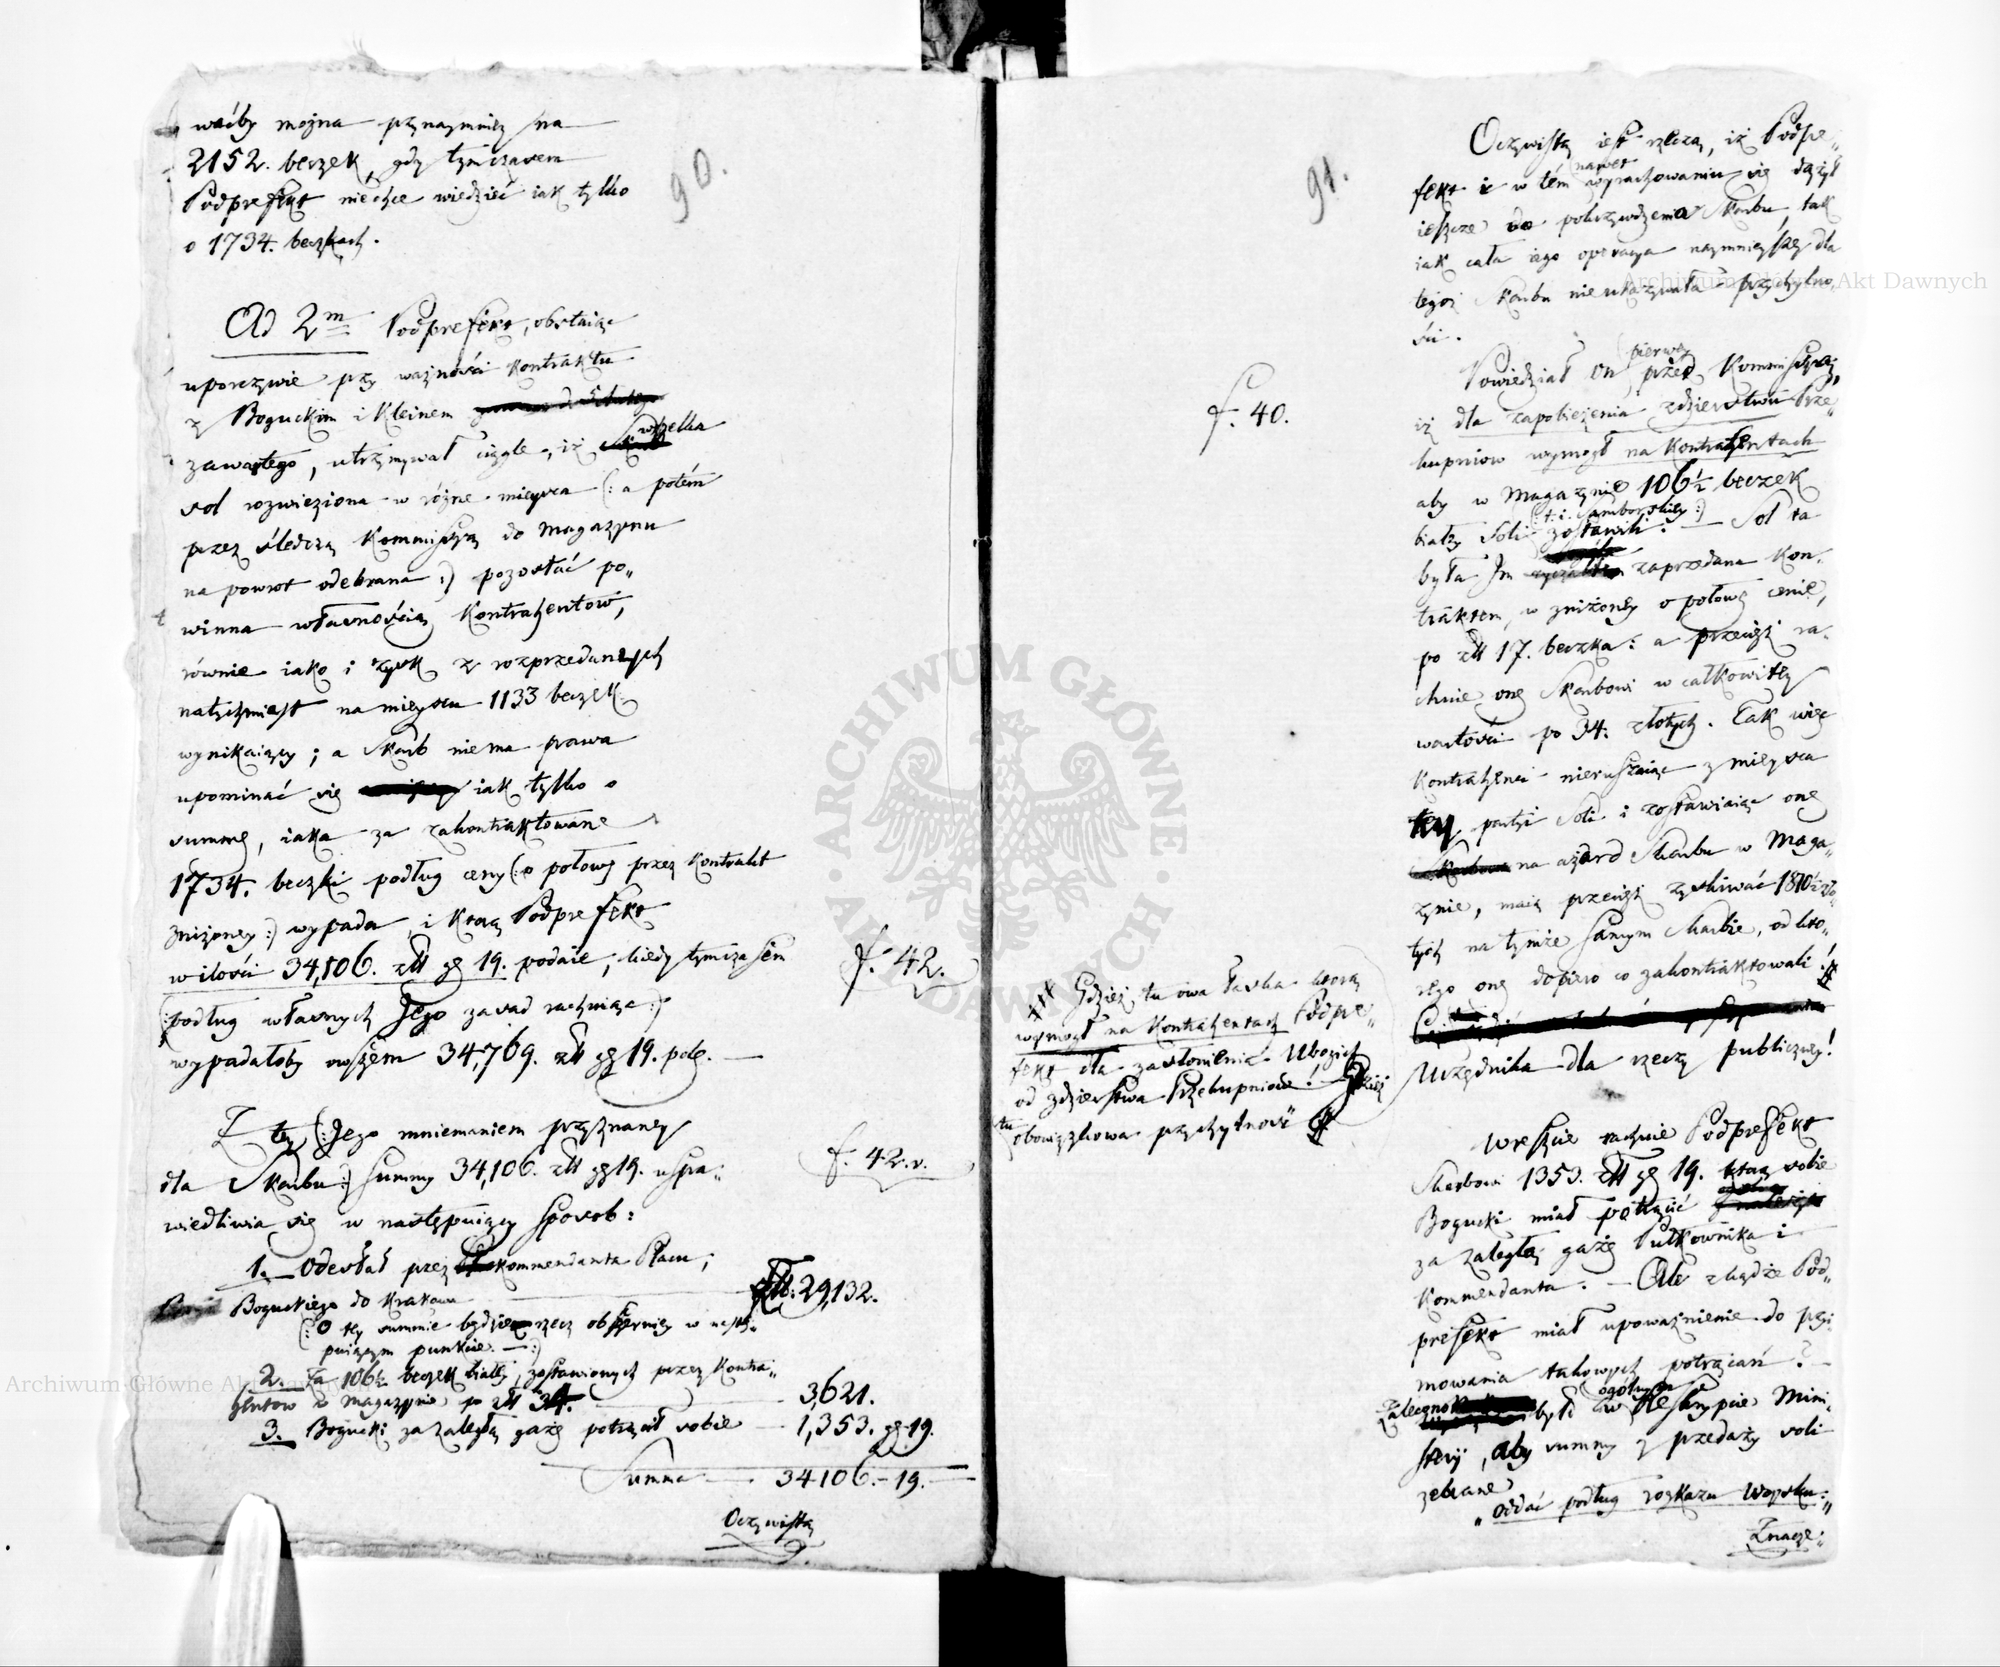 waćby można przynaymniey na
2152. beczek, gdy tymczasem
Podprefekt niechce wiedzieć iak tylko
o 1734. beczkach.
90.
Ad 2m Podprefekt, obstaiąc
uporczywie przy ważności kontraktu
z Boguckim i Kleinem
zawartego, utrzymywał ciągle, iż wszelka
sol rozwieziona w różne mieysca (: a potem
przez śledczą Kommissyą do magazynu
na powrot odebrana :) pozostać po„
winna własnością Kontrahentow,
równie iako i zysk z rozprzedanych
natychmiast na mieyscu 1133 beczek
wynikaiący; a Skarb niema prawa
upominać się iak tylko o
summę, iaka za zakontraktowane
1734. beczki podług ceny (: o połowę przez kontrakt
zniżoney :) wypada, i ktorą Podprefekt
w ilości 34,106. złł gg 19. podaie, kiedy tymczasem
f. 42.
(: podług własnych Jego zasad rachuiąc :)
wypadałoby owszem 34,769. złł gg 19. pols. —
Z tey (: Jego mniemaniem przyznaney
dla Skarbu :) summy 34,106. złł gg 19. uspra:
f. 42.v.
wiedliwia się w następuiący sposob:
1. Odesłał przez Kommendanta Placu,
Boguckiego do Krakowa — złł. 29,132.
(: O tey summie będzie rzecz obszerniey w nastę„
puiącym punkcie. — :)
2. Za 106½ beczek białey, zostawionych przez Kontra„
hentow w Magazynie po złł 34. — 3,621.
3. Bogucki za zaległą gażę potrącił sobie — 1,353. gg 19.
Summa — 34106. – 19. —
Oczywistą
91.
Oczywistą iest rzeczą, iż Podpre„
fekt i w tém nawet wyrachowaniu się dążył
ieszcze do pokrzywdzenia Skarbu, tak
iak cała iego operacya naymnieyszey dla
tegoż Skarbu nieukazywała przychylno„
ści.
Powiedział on pierwey przed Kommissyą,
iż dla zapobieżenia zdzierstwu Prze„
kupniow wymogł na Kontrahentach
f. 40.
aby w Magazynie 106½ beczek
białey Soli (: t. i. Samborskiey :) zostawili. — Sol ta
była Im zaprzedana Kon„
traktem, w zniżoney o połowę cenie,
po złł 17. beczka: a przecież ra„
chuie onę Skarbowi w całkowitey
wartości po 34. złotych. Tak więc
Kontrahenci nieruszaiąc z mieysca
tey partyi Soli i zostawiaiąc onę
na azard Skarbu w Maga„
zynie, maią przecież zyskiwać 1810½ zło„
tych na tymże samym Skarbie, od kto„
rego onę dopiero co zakontraktowali!
Gdzież tu owa łaska ktorą
wymogł na Kontrahentach Podpre„
fekt dla zasłonienia Ubogich
od zdzierstwa Przekupniow! — Gdzież
tu obowiązkowa przychylność
Urzędnika dla rzeczy publiczney!
Wreszcie rachuie Podprefekt
Skarbowi 1353. złł gg 19. ktorą sobie
Bogucki miał potrącić
za zaległą gażę Pułkownika i
Kommendanta. — Ale zkądże Pod„
prefekt miał upoważnienie do przy„
mowania takowych potrącań? —
Zalecono było w ogolnym Reskrypcie Mini„
stery, aby summy z przedaży soli
zebrane
„oddać podług rozkazu Woysku:„
Znacze:„